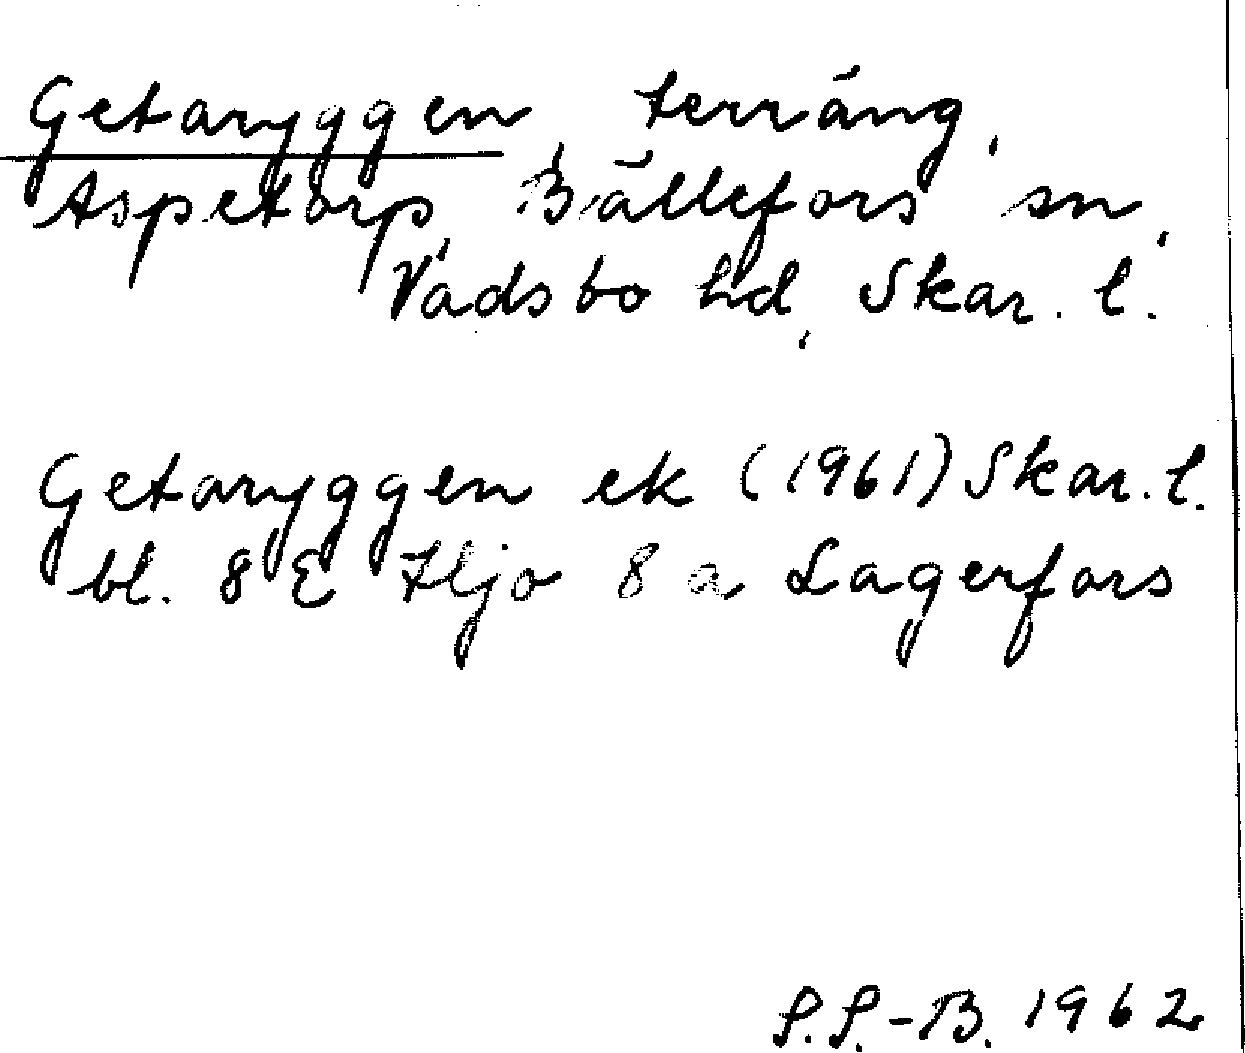 Getaryggen, terräng,
Aspetorp, Bällefors sn,
Vadsbo hd, Skar. l.
Getaryggen ek (1961) Skar. l.
bl. 8 E Hjo 8 a Lagerfors
P.P.-B. 1962